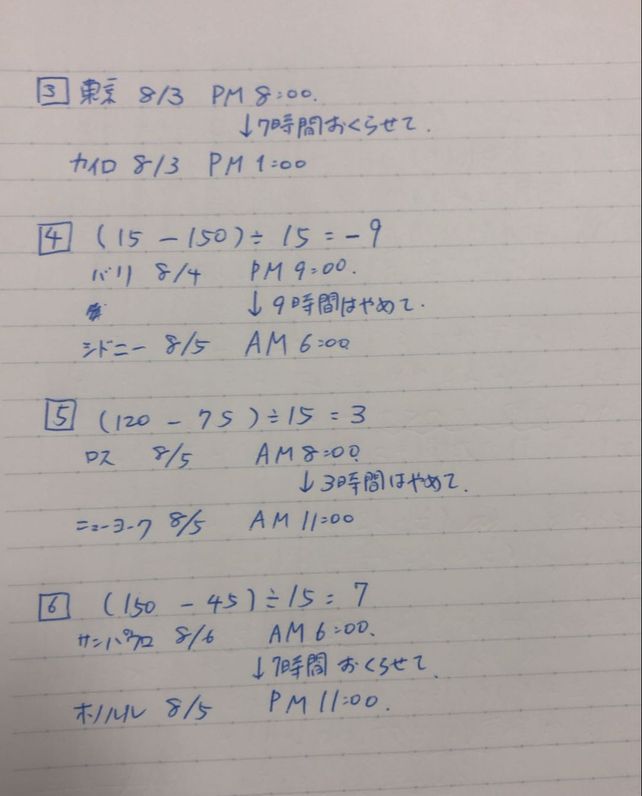 3 東京 8/3 PM 8:00.
↓7時間おくらせて.
カイロ 8/3 PM 1:00
4 (15 - 150) ÷ 15 = -9
パリ 8/4 PM 9:00.
↓ 9時間はやめて.
シドニー 8/5 AM 6:00
5 (120 - 75) ÷ 15 = 3
ロス 8/5 AM 8:00
↓ 3時間はやめて.
ニューヨーク 8/5 AM 11:00
6 (150 - 45) ÷ 15 = 7
サンパウロ 8/6 AM 6:00.
↓7時間 おくらせて.
ホノルル 8/5 PM 11:00.